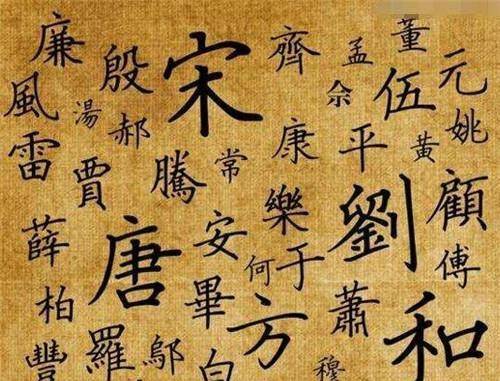 廉 殷 宋 齊 孟 董 元
風 湯 郝 伍 姚
雷 賈 騰 常 康 平 黃
薛 唐 安 樂 劉 顧
柏 畢 何 于 蕭 傅
豐 羅 鄔 白 方 穆 和